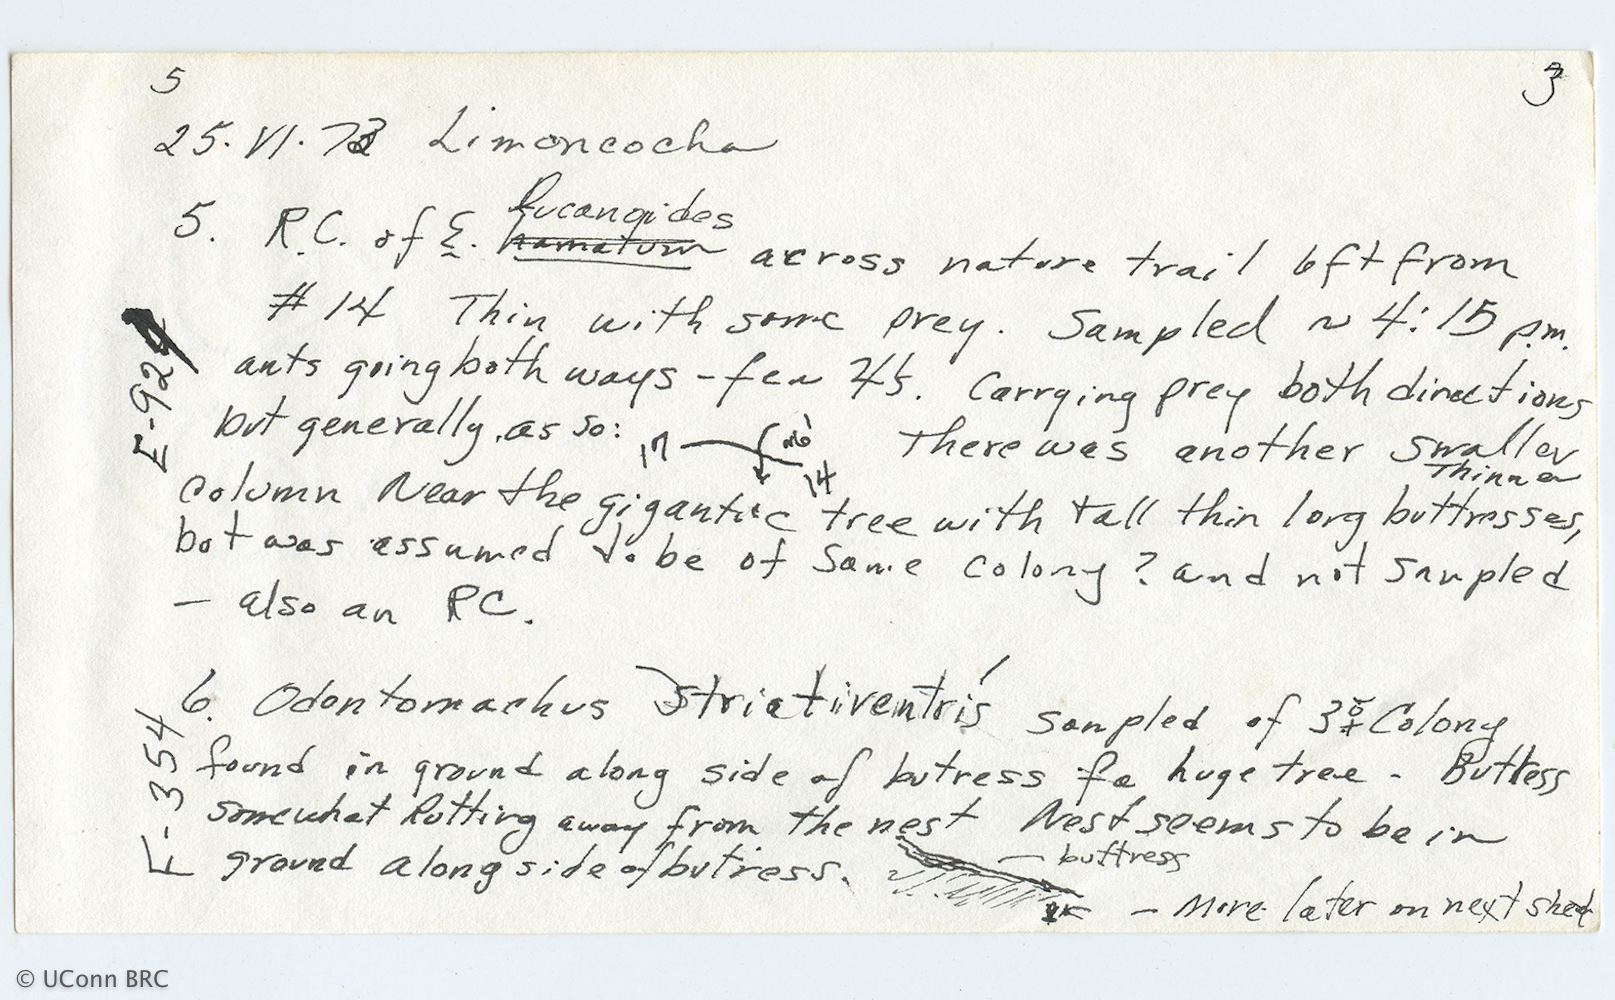 5
3
25.VI.73 Limoncocha
lucanoides
5. R.C. of E. hamatum across nature trail 6ft from
#14 Thin with some prey. Sampled ~ 4:15 p.m.
ants going both ways - few 4's. Carrying prey both directions
but generally, as so: 17 14 There was another smaller
Thinner
column Near the gigantic tree with tall thin long buttresses,
but was assumed to be of same colony? and not sampled
- also an RC.
E-92
6. Odontomachus strictiventris sampled of 3rd Colony
found in ground along side of butress of a huge tree - Buttress
somewhat Rotting away from the nest Nest seems to be in
ground along side of butress. - buttress
- More later on next sheet
E-354
© UConn BRC